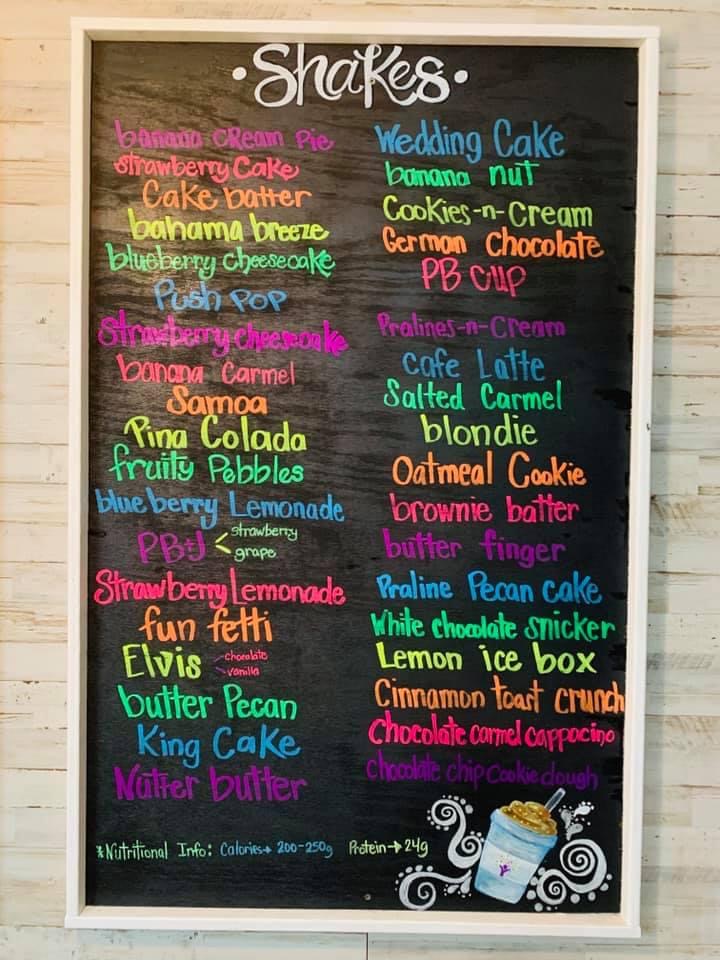 •Shakes•
banana cream Pie
strawberry Cake
Cake batter
bahama breeze
blueberry cheesecake
Push Pop
Strawberry cheesecake
banana Carmel
Samoa
Pina Colada
fruity Pebbles
blueberry Lemonade
PB+J < strawberry
grape
Strawberry Lemonade
fun fetti
Elvis - chocolate
- vanilla
butter Pecan
King Cake
Nutter butter
Wedding Cake
banana nut
Cookies-n-Cream
German Chocolate
PB CUP
Pralines-n-Cream
cafe Latte
Salted Carmel
blondie
Oatmeal Cookie
brownie batter
butter finger
Praline Pecan cake
White chocolate snicker
Lemon ice box
Cinnamon toast crunch
Chocolate carmel cappacino
chocolate chip Cookie dough
*Nutritional Info: Calories→ 200-250g Protein→ 24g